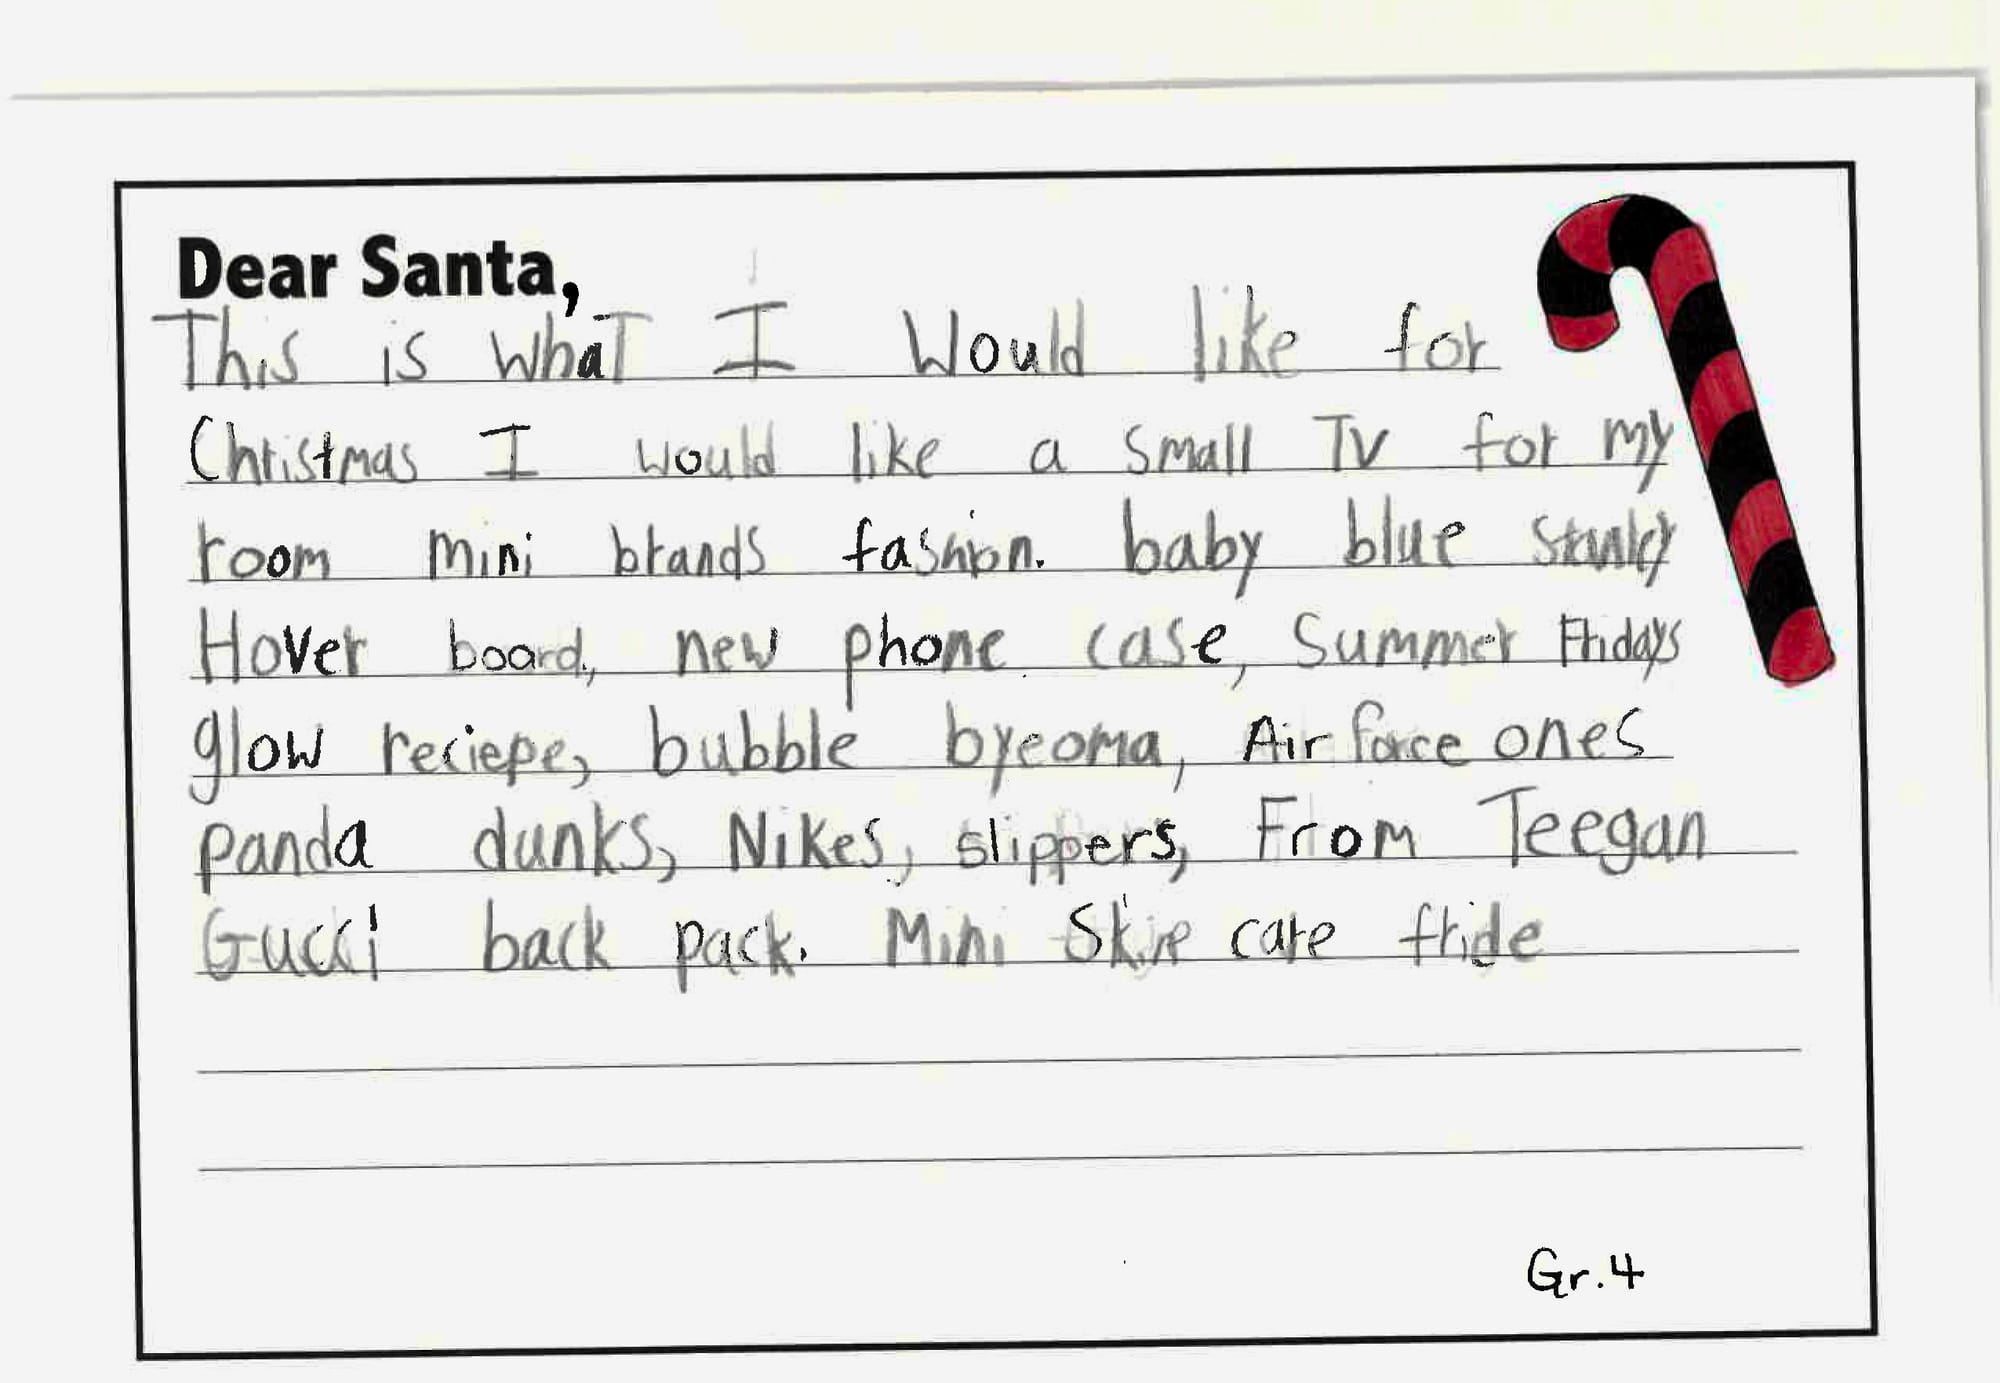 Dear Santa,
This is what I Would like for
Christmas I would like a small TV for my
room mini brands fashion. baby blue Stanley
Hover board, new phone case, Summer Fridays
glow reciepe, bubble byeoma, Air force ones
panda dunks, Nikes, slippers, From Teegan
Gucci back pack. Mini Skin care fride
Gr.4